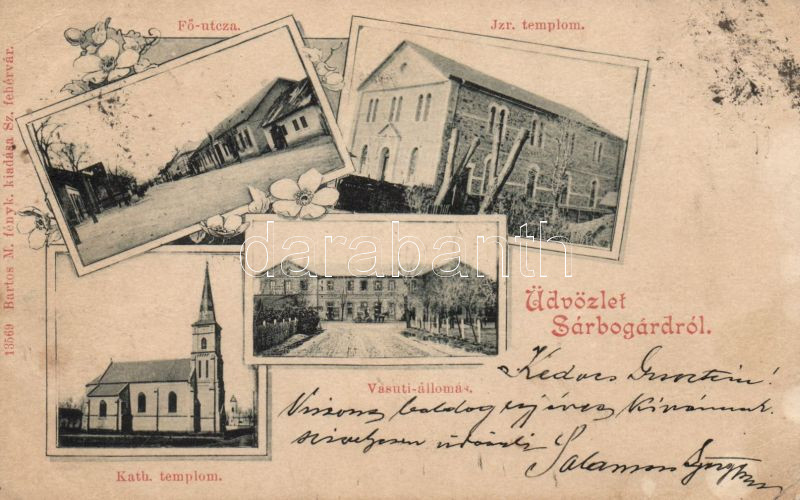 Fő-utcza.
Jzr. templom.
13569 Bartos M. fényk. kiadása Sz. fehérvár.
darabanth
Üdvözlet
Sárbogárdról.
Vasuti-állomás.
Kedves
Viszont boldog uj évet kívánnak
szivélyesen üdvözli
Salamon
Kath. templom.